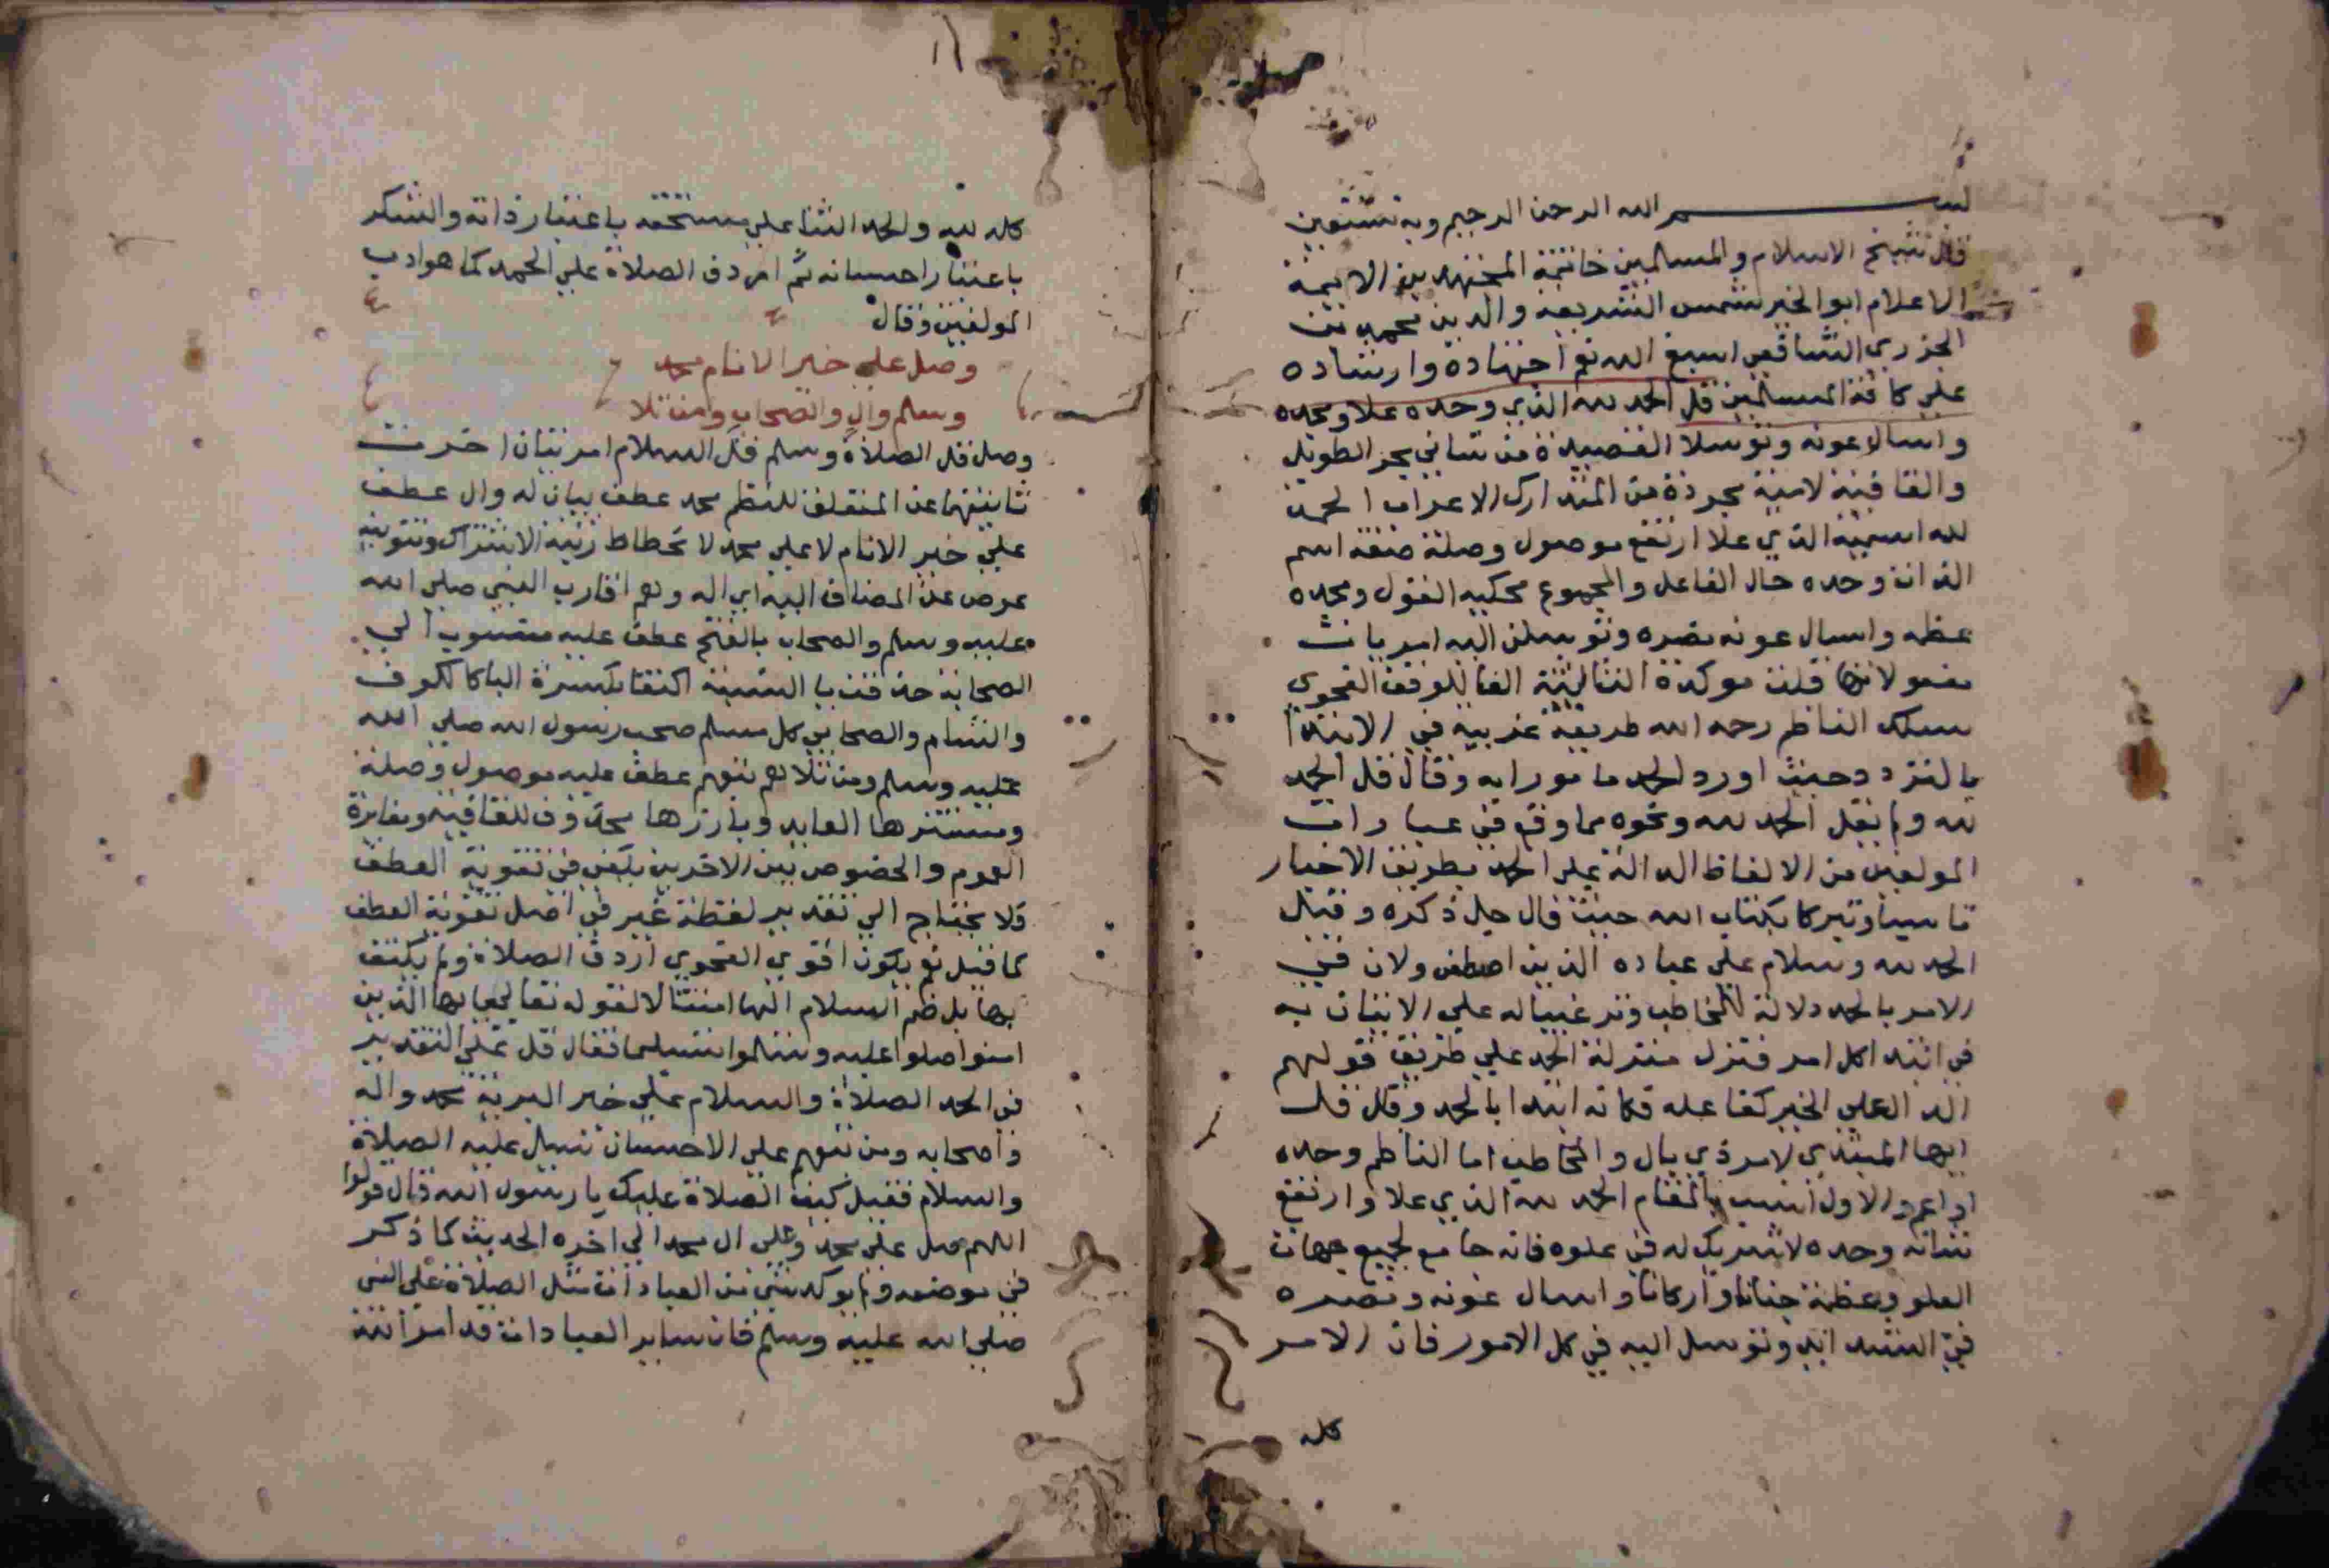 بسم الله الرحمن الرحيم وبه نستعين
قال شيخ الاسلام والمسلمين خاتمة المجتهدين الايمة
الاعلام ابو الخير شمس الشريعة والدين محمد بن
الجزري الشافعي اسبغ الله تع اجتهاده وارشاده
علي كافة المسلمين قل الحمد لله الذي وحده علا ومجده
واسال عونه وتوسلا القصيدة من ثاني بحر الطويل
والقافية لامية مجردة من المتدارك الاعراب الحمد
لله اسمية الذي علا ارتفع موصول وصلة صفة اسم
الذات وحده حال الفاعل والمجموع محكيه القول ومجده
عظمه واسال عونه نصره وتوسلن اليه امريات
مفعولاتها قلبت موكدة الثالثة الفا للوقف الفحوي
سلك الناظم رحمه الله طريقة غريبة في الابتدا
بالتردد حيث اورد الحمد مامورا به وقال قل الحمد
لله ولم يقل الحمد لله ونحوه مما وقع في عبارات
المولفين من الالفاظ الدالة علي الحمد بطريق الاخبار
تاسيا وتبركا بكتاب الله حيث قال جل ذكره وقيل
الحمد لله وسلام علي عباده الذين اصطفي ولان في
الامر بالحمد دلالة للمخاطب وترغيبا له علي الاتيان به
في ابتدا كل امر فتزل منزلة الحمد علي طريق قولهم
الدال علي الخير كفاعله فكانه ابتدا بالحمد وقال قل
ايها المبتدي لامر ذي بال والمخاطب اما الناظم وحده
او اعم والاول انسب بالمقام الحمد لله الذي علا وارتفع
شانه وحده لا شريك له في علوه فانه جامع لجميع جهات
العلو وعظمة جنانا واركانا واسال عونه ونصره
في الشدايد وتوسل اليه في كل الامور فان الامر
كله
كله لله والحمد الثنا علي مستحقه باعتبار ذاته والشكر
باعتبار احسانه ثم اردف الصلاة علي الحمد كما هو ادب
المولفين وقال
وصل علي خير الانام محمد
وسلم وال والصحاب ومن تلا
وصل قل الصلاة وسلم قل السلام امريتان اخرت
ثانيتهما عن المتعلق للنظم محمد عطف بيان له وال عطف
علي خير الانام لا علي محمد لانحطاط رتبة الاشتراك وتنوينه
عوض عن المضاف اليه اي اله وهم اقارب النبي صلي الله
عليه وسلم والصحاب بالفتح عطف عليه منسوب الي
الصحابة حذفت يا النسبة اكتفا بكسرة البا كالكوف
والشام والصحابي كل مسلم صحب رسول الله صلي الله
عليه وسلم ومن تلاهم تبعهم عطف عليه موصول وصلة
ومستترها العايد وبارزها محذوف للقافية ومغايرة
العموم والخصوص بين الاخرين يكفي في تقوية العطف
فلا يحتاج الي تقدير لفظة غير في اصل تقوية العطف
كما قيل نع يكون اقوي الفحوي اردف الصلاة ولم يكتف
بها بل ضم السلام اليها امتثالا لقوله تعالي يا ايها الذين
امنوا صلوا عليه وسلموا تسليما فقال قل علي التقدير
في الحمد الصلاة والسلام علي خير البرية محمد واله
واصحابه ومن تبعهم علي الاحسان سيل عليه الصلاة
والسلام فقيل كيف الصلاة عليك يا رسول الله قال قولوا
اللهم صل علي محمد وعلي ال محمد الي اخره الحديث كما ذكر
في موضعه ولم يوكد شي من العبادات مثل الصلاة علي النبي
صلي الله عليه وسلم فان ساير العبادات قد امر الله